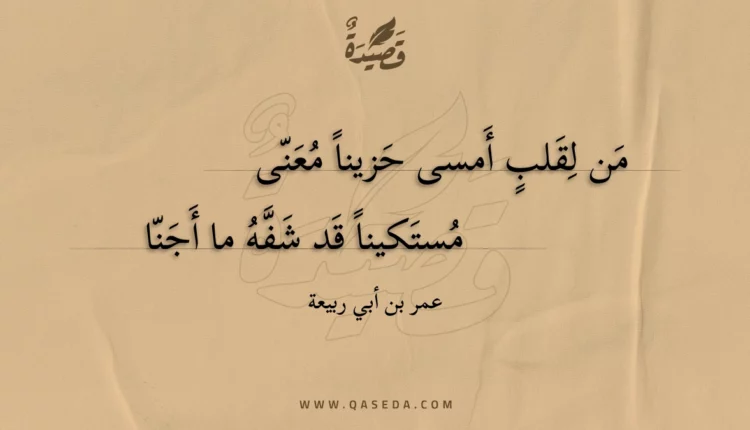 قَصِيدَةٌ
مَن لِقَلبٍ أَمسى حَزيناً مُعَنّى
مُستَكيناً قَد شَفَّهُ ما أَجَنّا
عمر بن أبي ربيعة
WWW.QASEDA.COM